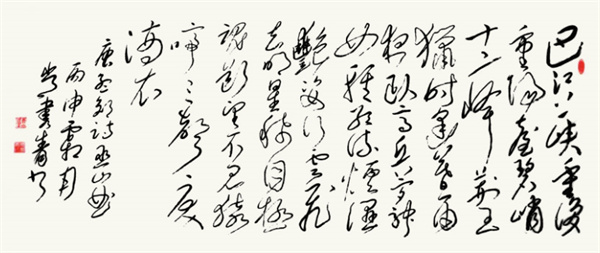 巴江上峡重复
重阳台碧峭
十二峰荆王
猎时逢暮雨
夜卧高丘梦神
女轻红流烟湿
艳姿行云飞
去明星稀目极
魂断望不见猿
啼三声泪
滴衣
唐孟郊诗巫山曲
丙申霜月